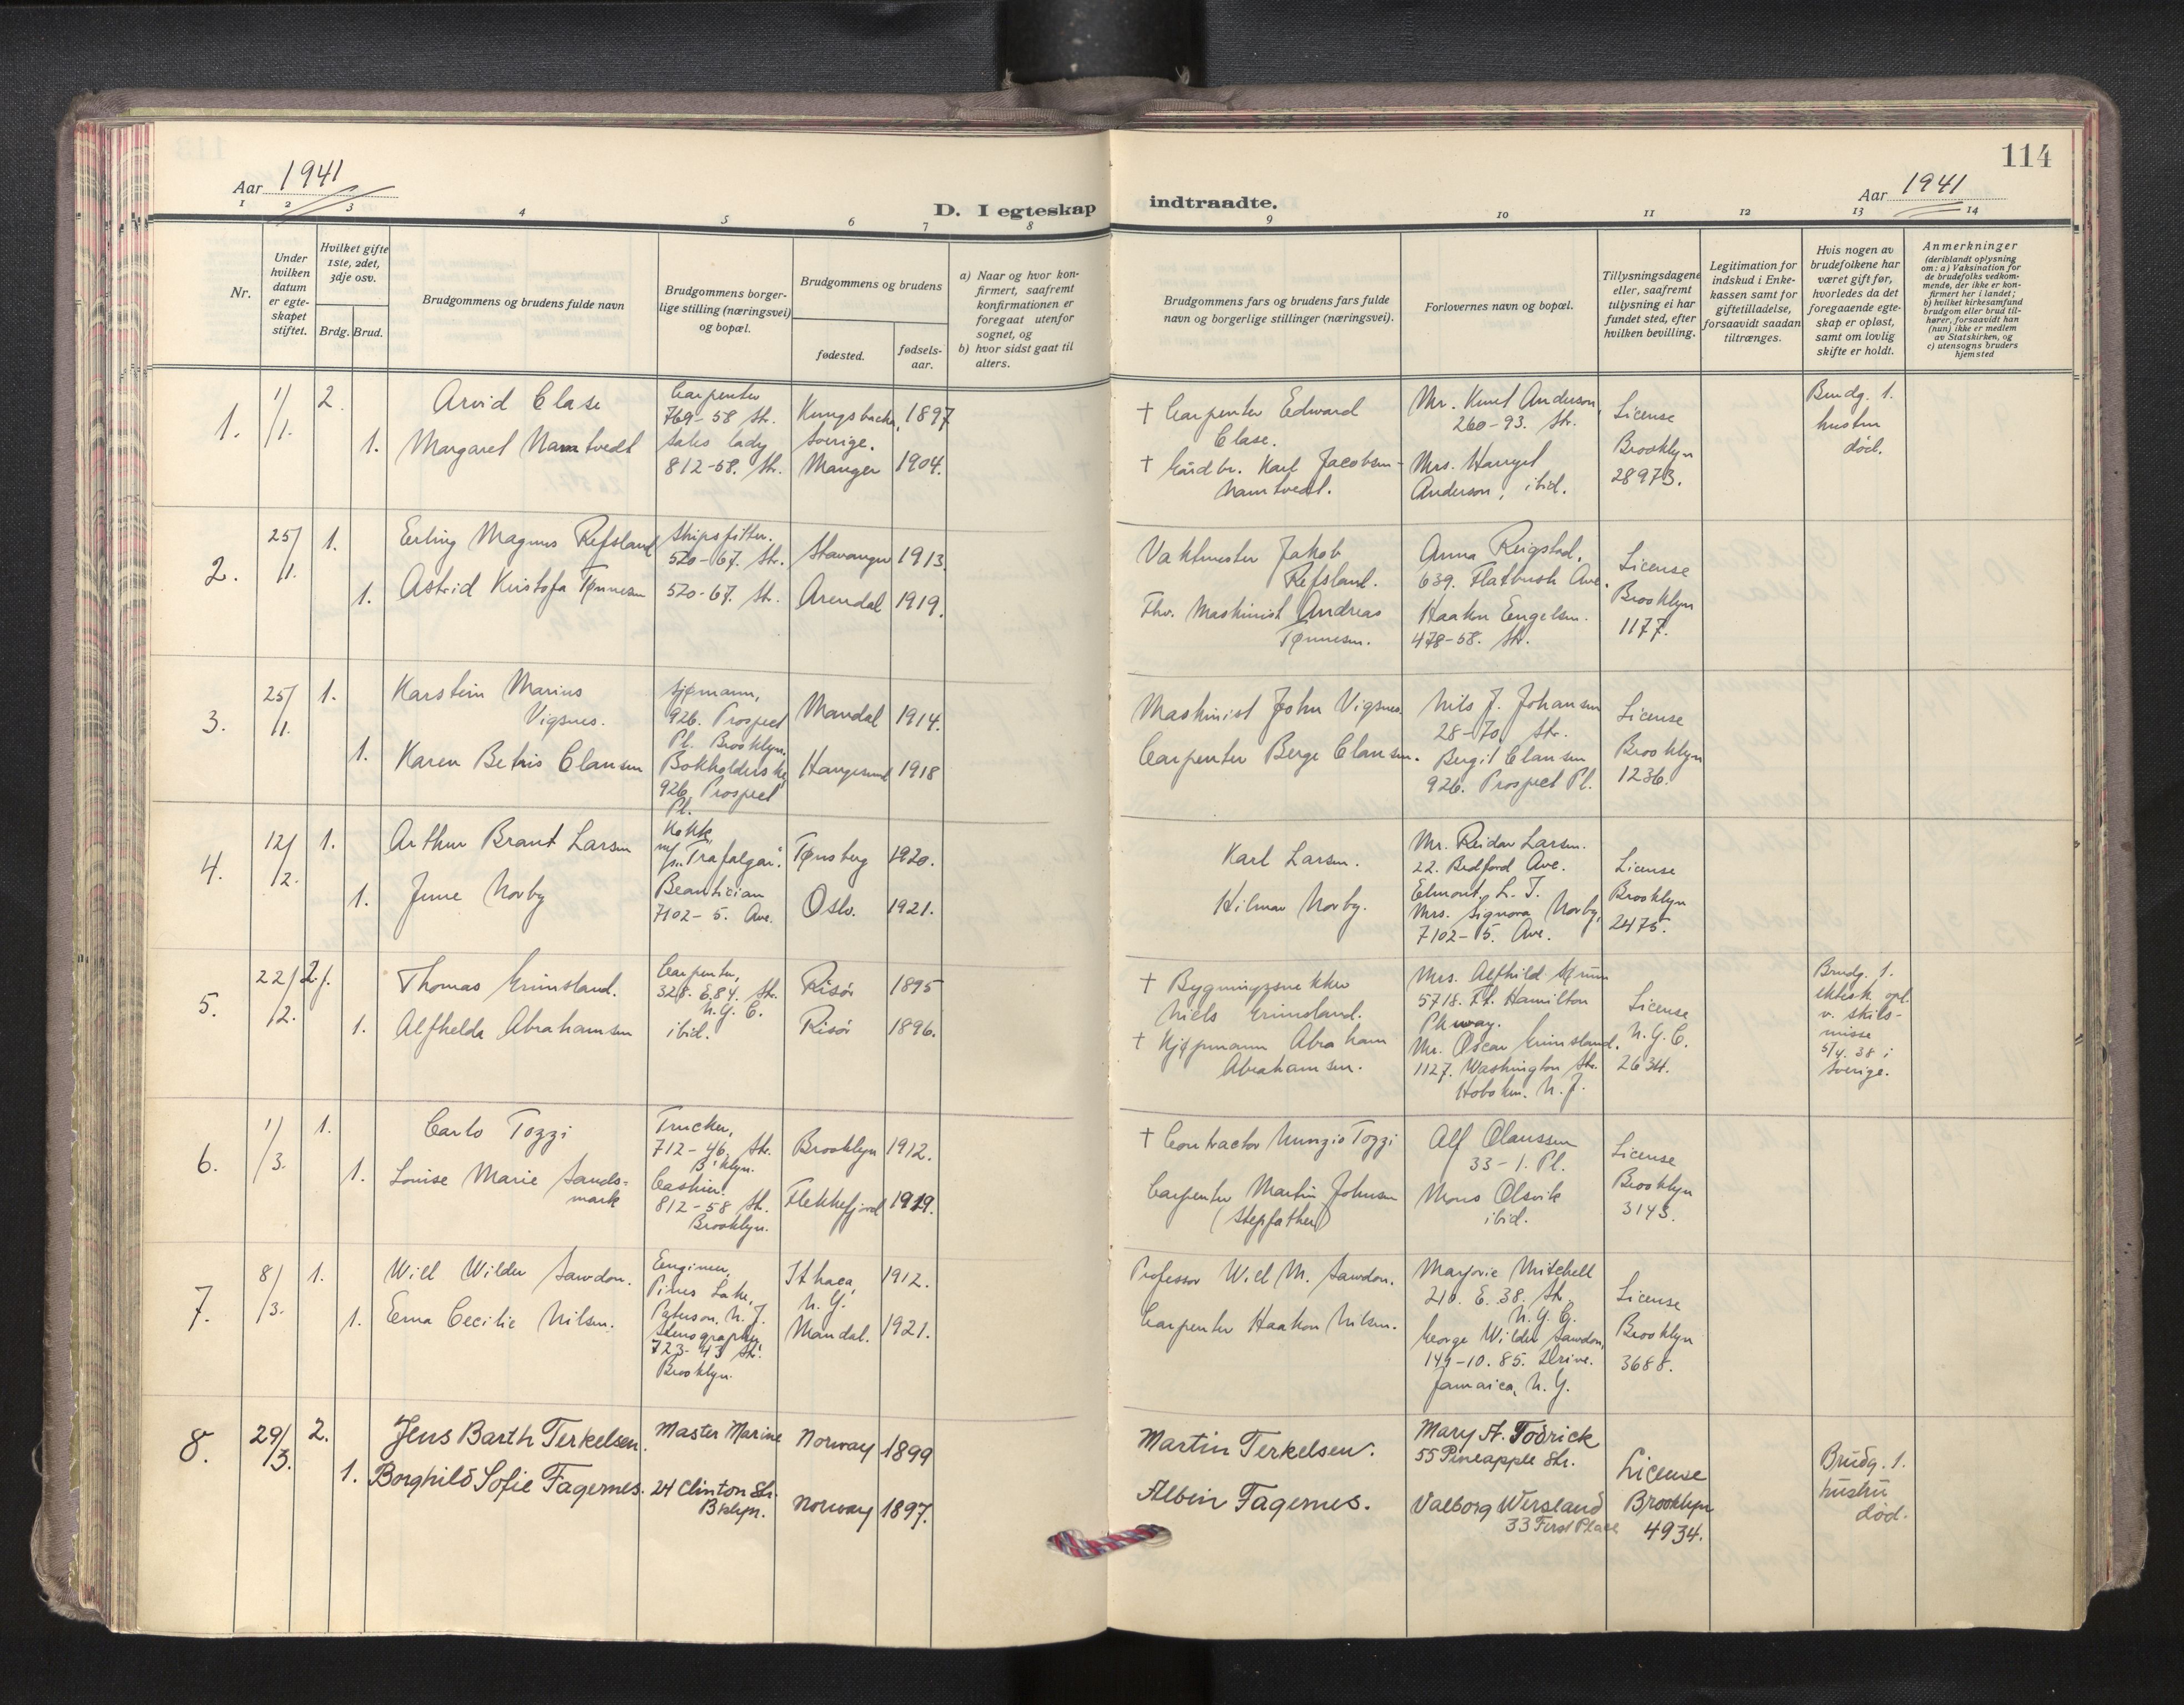 Aar 1941
D. I egteskap
1 2 3 4 5 6 7 8
Nr.
Under hvilken datum er egteskapet stiftet.
Hvilket gifte 1ste, 2det, 3dje osv.
Brdg. Brud.
Brudgommens og brudens fulde navn
Brudgommens borgerlige stilling (næringsvei) og bopæl.
Brudgommens og brudens
fødested.
fødselsaar.
a) Naar og hvor konfirmert, saafremt konfirmationen er foregaat utenfor sognet, og
b) hvor sidst gaat til alters.
1. 1/1. 2. Arvid Clase
Carpenter
769-58 Str.
Kungsbacka, Sverige. 1897
1. Margaret Namtvedt
Sales lady
812-58. Str.
Manger 1904.
2. 25/1. 1. Erling Magnus Refsland
Shipsfitter.
520-67. Str.
Stavanger 1913.
1. Astrid Kristofa Tønnesen
520-67. Str.
Arendal 1919.
3. 25/1. 1. Karstein Marius
Vigsnes.
Sjømann,
926. Prospect
Pl. Brooklyn.
Mandal 1914.
1. Karen Betris Clausen
Bokholderske
926. Prospect
Pl.
Haugesund 1918
4. 12/2. 1. Arthur Brant Larsen
Kokk,
m/s. "Trafalgar".
Tønsberg 1920.
1. June Norby
Beautician
7102-5. Ave.
Oslo. 1921.
5. 22/2. 2. Thomas Grimsland.
Carpenter,
328. E.84. Str.
N.Y.C.
Risör 1895
1. Alfhelda Abrahamsen
ibid.
Risör 1896.
6. 1/3. 1. Carlo Tozzi
Trucker,
712-46. Str.
B'klyn.
Brooklyn 1912.
1. Louise Marie Sands-
mark
Cashier.
812-58 Str.
Brooklyn.
Flekkefjord 1919.
7. 8/3. 1. Will Wilder Sawdon.
Engineer,
Pines Lake,
Paterson, N.J.
Ithaca, N.Y. 1912.
1. Erna Cecilie Nilsen.
Stenographer
723-43 Str.
Brooklyn.
Mandal. 1921.
8. 29/3. 2. Jens Barth Terkelsen.
Master Marine
Norway 1899
1. Borghild Sofie Fagernes.
24 Clinton Str.
B'klyn.
Norway 1897.
114
indtraadte.
Aar 1941
9 10 11 12 13 14
Brudgommens fars og brudens fars fulde navn og borgerlige stillinger (næringsvei).
Forlovernes navn og bopæl.
Tillysningsdagene eller, saafremt tillysning ei har fundet sted, efter hvilken bevilling.
Legitimation for indskud i Enkekassen samt for giftetilladelse, forsaavidt saadan tiltrænges.
Hvis nogen av brudefolkene har været gift før, hvorledes da det foregaaende egteskap er opløst, samt om lovlig skifte er holdt.
Anmerkninger
(deriblandt oplysning om: a) Vaksination for de brudefolks vedkommende, der ikke er konfirmert her i landet;
b) hvilket kirkesamfund brudgom eller brud tilhører, forsaavidt han (hun) ikke er medlem av Statskirken, og
c) utensogns bruders hjemsted
† Carpenter Edward
Clase.
† Gårdbr. Karl Jacobsen
Namtvedt.
Mr. Knut Anderson,
260-93. Str.
Mrs. Harryet
Anderson, ibid.
License
Brooklyn
28973.
Brudg. 1.
hustru
död.
Vaktmester Jakob
Refsland.
Fhv. Maskinist Andreas
Tønnesen.
Anna Reigstad.
639. Flatbush Ave.
Haakon Engelsen.
478-58. Str.
License
Brooklyn
1177.
Maskinist John Vigsnes.
Carpenter Berge Clausen.
Nils J. Johansen
28-70. Str.
Bergit Clausen
926. Prospect Pl.
License
Brooklyn
1236.
Karl Larsen.
Hilmar Norby.
Mr. Reidar Larsen.
22. Bedford Ave.
Elmont, L. I.
Mrs. Signora Norby,
7102-5. Ave.
License
Brooklyn
2475.
† Bygningssnekker
Niels Grimsland.
† Kjøpmann Abraham
Abrahamsen.
Mrs. Alfhild
5718. Ft. Hamilton
Pkway.
Mr. Oscar Grimsland.
1127. Washington Str.
Hoboken. N.J.
License
N.Y.C.
2634.
Brudg. 1.
ektesk. opl.
v. skils-
misse
5/4. 38 i
Sverige.
† Contractor Nunzio Tozzi
Carpenter Martin Johnsen
(Stepfather)
Alf Olaussen
33-1. Pl.
Mons Olsvik
ibid.
License
Brooklyn
3143.
Professor Will M. Sawdon.
Carpenter Haakon Nilsen.
Marjorie Mitchell
210. E. 38. Str.
N.Y.C.
George Wilder Sawdon,
144-10. 85. Drive.
Jamaica, N.Y.
License
Brooklyn
3688.
Martin Terkelsen.
Albin Fagernes.
Mary A. Todrick
55 Pineapple Str.
Valborg Wersland
33 First Place
License
Brooklyn
4934.
Brudg. 1.
hustru
död.